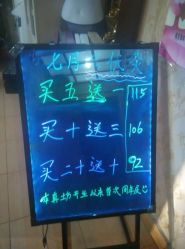 七月
买五送一 115
买十送三 106
买二十送十 92
开业以来首次周年庆